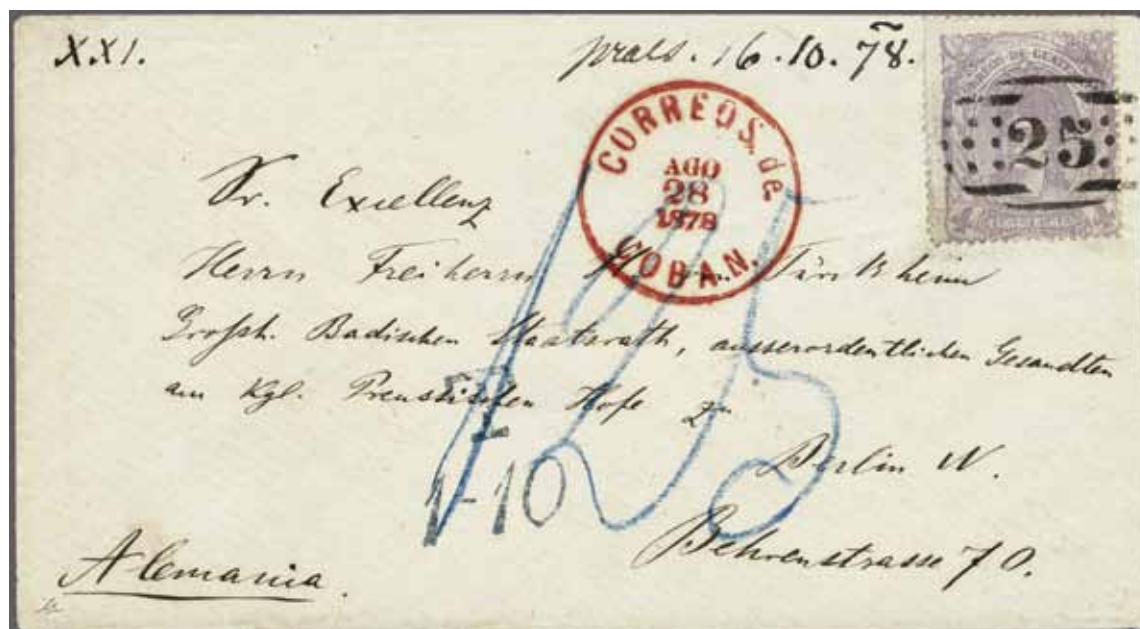 XXI.
praes. 16.10.78.
CORREOS DE GUATEMALA
25
CORREOS. de
AGO
28
1878
COBAN.
Sr. Exellenz
Herrn Freiherrn von Türckheim
Grossh. Badischen Staatsrath, ausserordentlichen Gesandten
am Kgl. Preussischen Hofe zu
Berlin W.
Behrenstrasse 70.
T
1-10
125
Alemania.